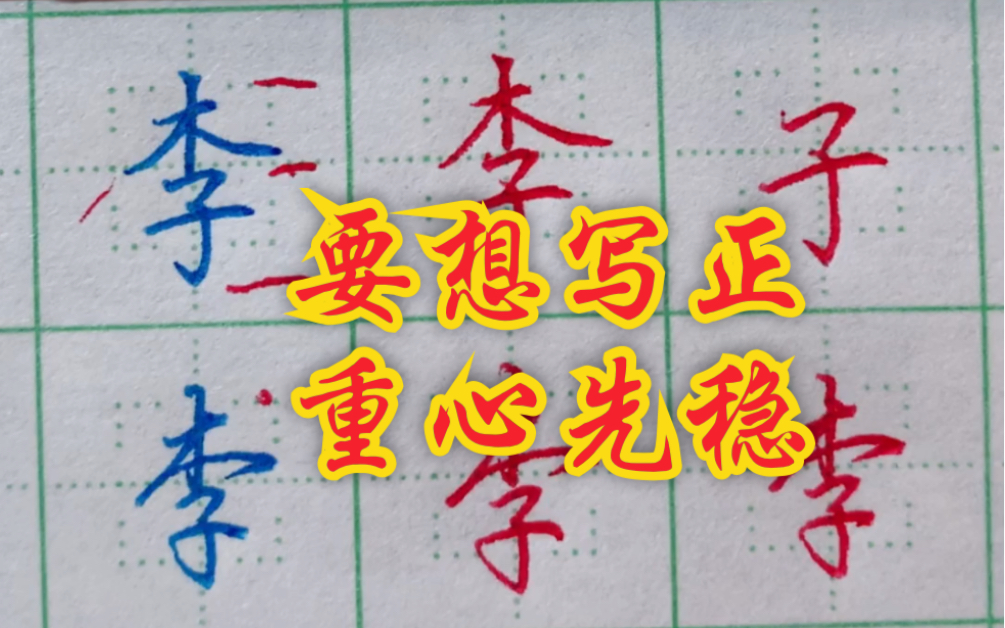 李 李 子
要想写正
重心先稳
李 李 李